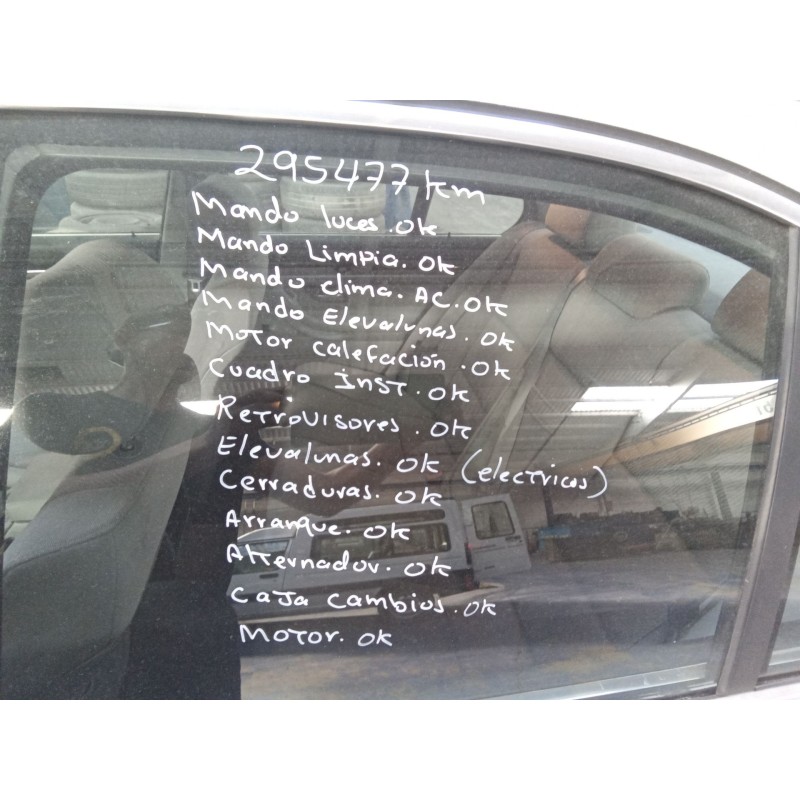 295477 km
Mando luces. ok
Mando Limpia. ok
Mando clima. AC. ok
Mando Elevalunas. ok
Motor calefación. ok
Cuadro INST. ok
Retrovisores. ok
Elevalunas. ok (electricos)
Cerraduras. ok
Arranque. ok
Alternador. ok
Caja cambios. ok
Motor. ok